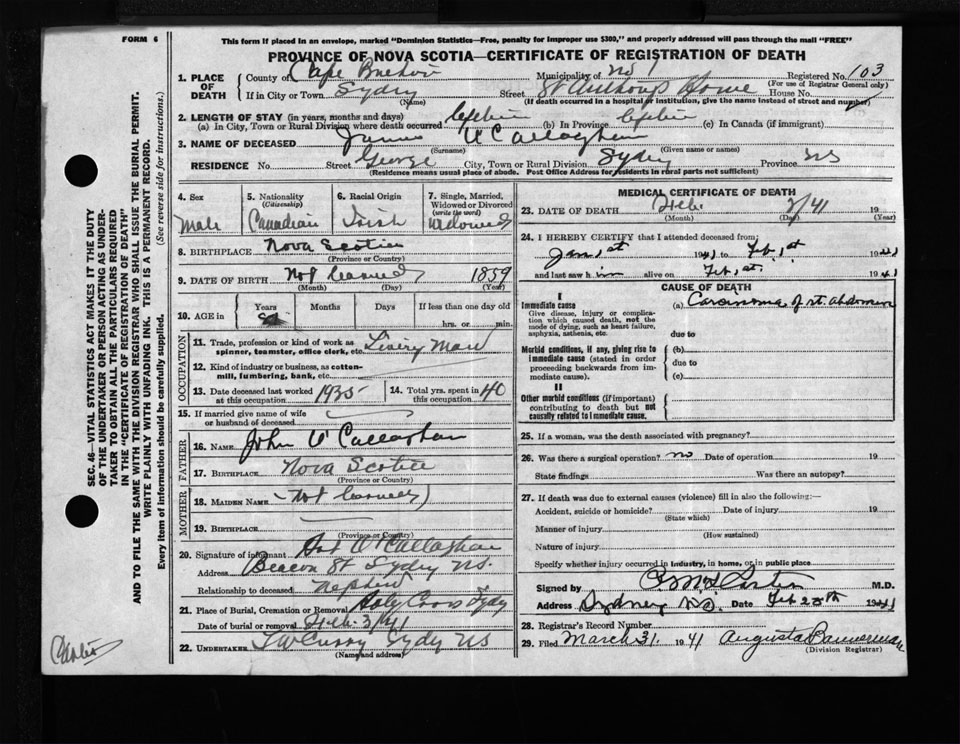 FORM 6
This form if placed in an envelope, marked "Dominion Statistics—Free, penalty for improper use $300," and properly addressed will pass through the mail "FREE"
PROVINCE OF NOVA SCOTIA—CERTIFICATE OF REGISTRATION OF DEATH
1. PLACE OF DEATH
County of Cape Breton Municipality of No 1 Registered No. 103
(For use of Registrar General only)
If in City or Town Sydney Street St Anthony's Home House No.
(Name) (If death occurred in a hospital or institution, give the name instead of street and number)
2. LENGTH OF STAY (in years, months and days)
(a) In City, Town or Rural Division where death occurred lifetime (b) In Province lifetime (c) In Canada (if immigrant)
3. NAME OF DECEASED James O'Callaghan
(Surname) (Given name or names)
RESIDENCE No. Street George City, Town or Rural Division Sydney Province NS
(Residence means usual place of abode. Post Office Address for residents in rural parts not sufficient)
4. Sex Male
5. Nationality (Citizenship) Canadian
6. Racial Origin Irish
7. Single, Married, Widowed or Divorced (write the word) Widowed
8. BIRTHPLACE Nova Scotia
(Province or Country)
9. DATE OF BIRTH Not learned 1859
(Month) (Day) (Year)
10. AGE in Years Months Days If less than one day old
hrs. or min.
OCCUPATION
11. Trade, profession or kind of work as spinner, teamster, office clerk, etc. Livery Man
12. Kind of industry or business, as cotton-mill, lumbering, bank, etc.
13. Date deceased last worked at this occupation 1935
14. Total yrs. spent in this occupation 40
15. If married give name of wife or husband of deceased
FATHER
16. NAME John O'Callaghan
17. BIRTHPLACE Nova Scotia
(Province or Country)
MOTHER
18. MAIDEN NAME Not learned
19. BIRTHPLACE
(Province or Country)
20. Signature of informant O'Callaghan
Address Beacon St Sydney NS.
Relationship to deceased Nephew
21. Place of Burial, Cremation or Removal Holy Cross Sydy
Date of burial or removal Feb. 3/41
22. UNDERTAKER Curry Sydy NS
(Name and address)
MEDICAL CERTIFICATE OF DEATH
23. DATE OF DEATH Feb. 2/41 19
(Month) (Day) (Year)
24. I HEREBY CERTIFY that I attended deceased from:
Jan 1st 1941 to Feb 1st 1941
and last saw him alive on Feb 1st. 1941
CAUSE OF DEATH
I
Immediate cause
Give disease, injury or complication which caused death, not the mode of dying, such as heart failure, asphyxia, asthenia, etc.
(a) Carcinoma of rt. abdomen
due to
Morbid conditions, if any, giving rise to immediate cause (stated in order proceeding backwards from immediate cause).
(b)
due to
(c)
II
Other morbid conditions (if important) contributing to death but not causally related to immediate cause.
25. If a woman, was the death associated with pregnancy?
26. Was there a surgical operation? no Date of operation 19
State findings Was there an autopsy?
27. If death was due to external causes (violence) fill in also the following:—
Accident, suicide or homicide? Date of injury 19
(State which)
Manner of injury
(How sustained)
Nature of injury
Specify whether injury occurred in industry, in home, or in public place
Signed by M.D.
Address Sydney N.S. Date Feb 28th 1941
28. Registrar's Record Number
29. Filed March 31 1941 Augusta Bannerman
(Division Registrar)
SEC. 46—VITAL STATISTICS ACT MAKES IT THE DUTY OF THE UNDERTAKER OR PERSON ACTING AS UNDERTAKER TO OBTAIN ALL THE PARTICULARS REQUIRED IN THE "CERTIFICATE OF REGISTRATION OF DEATH"
AND TO FILE THE SAME WITH THE DIVISION REGISTRAR WHO SHALL ISSUE THE BURIAL PERMIT.
WRITE PLAINLY WITH UNFADING INK. THIS IS A PERMANENT RECORD.
Every item of information should be carefully supplied. (See reverse side for instructions.)